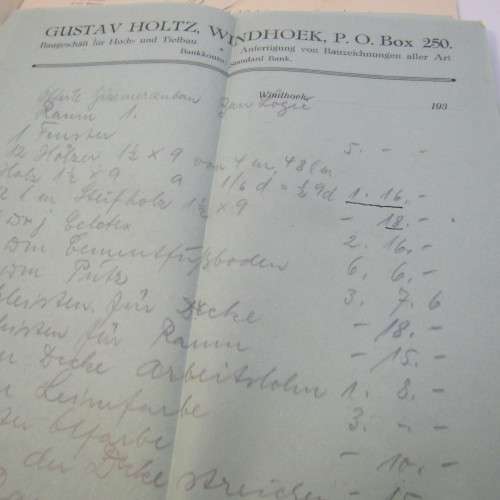 GUSTAV HOLTZ, WINDHOEK, P. O. Box 250.
Baugeschäft für Hoch- und Tiefbau. Anfertigung von Bauzeichnungen aller Art
Bankkonto: Standard Bank.
Windhoek, 193
Zimmeranbau Loge
Raum 1.
1 Fenster 5. - -
12 Hölzer 1½ x 9 von 4 m, 48 lm
Holz 1½ x 9 a 1/6 d = ½ 9d 1. 16. -
lm Steifholz 1½ x 9 - 18. -
Celotex 2. 16. -
Qm Cementfußboden 6. 6. -
Qm Putz 3. 7. 6
leisten für Decke - 18. -
leisten für Raum - 15. -
Decke Arbeitslohn 1. 8. -
Leimfarbe 3. - -
Ölfarbe - 10. -
der Decke streichen - 15